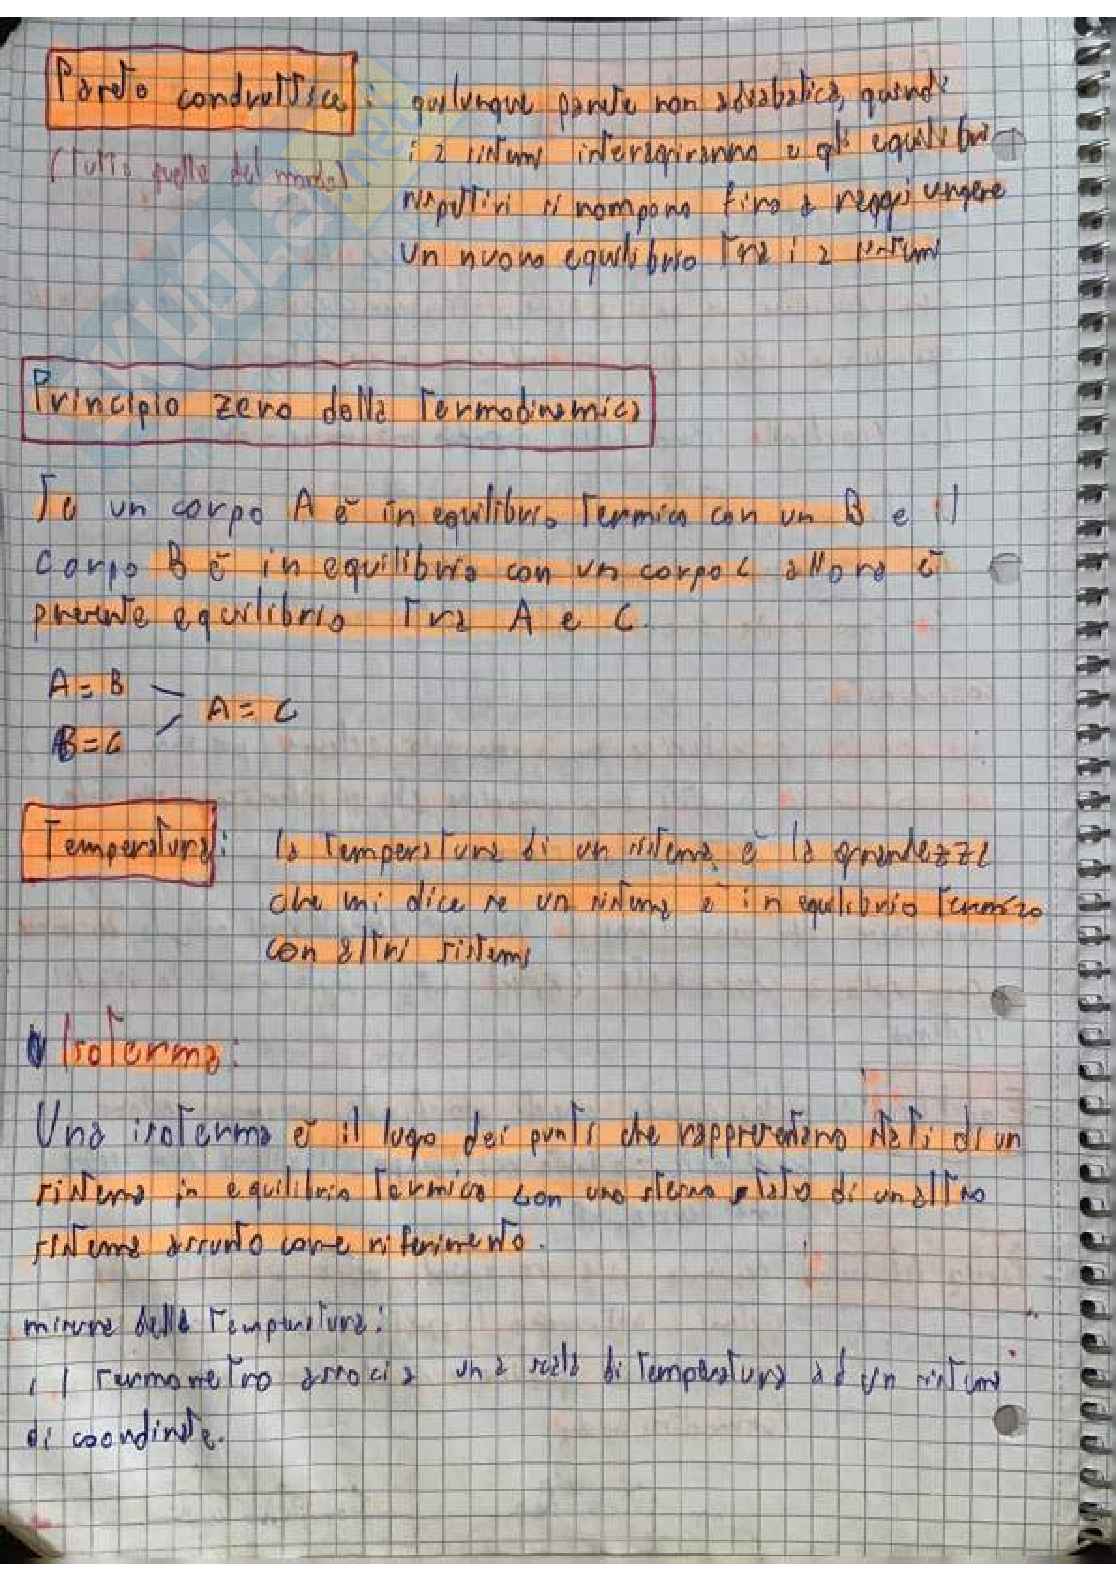 Parete conduttrice : qualunque parete non adiabatica, quindi
(tutte quelle del mondo) i 2 sistemi interagiranno e gli equilibri
rispettivi si rompono fino a raggiungere
un nuovo equilibrio tra i 2 sistemi
Principio zero della Termodinamica
Se un corpo A è in equilibrio termico con un B e il
corpo B è in equilibrio con un corpo C allora è
presente equilibrio tra A e C.
A = B
A = C
B = C
Temperatura: la temperatura di un sistema è la grandezza
che mi dice se un sistema è in equilibrio termico
con altri sistemi
Isoterma:
Una isoterma è il luogo dei punti che rappresentano stati di un
sistema in equilibrio termico con uno stesso stato di un altro
sistema assunto come riferimento.
misura della temperatura:
il termometro associa una scala di temperatura ad un sistema
di coordinate.